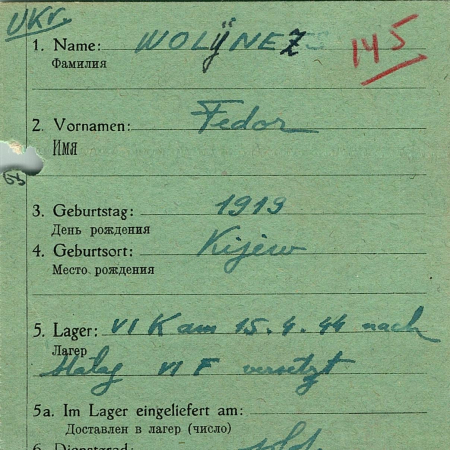 UKr.
1. Name: WOLŸNEZ 145
Фамилия
2. Vornamen: Fedor
Имя
3. Geburtstag: 1919
День рождения
4. Geburtsort: Kijew
Место рождения
5. Lager: VI K am 15.4.44 nach
Лагер
Stalag VI F versetzt
5a. Im Lager eingeliefert am:
Доставлен в лагер (число)
6. Dienstgrad: